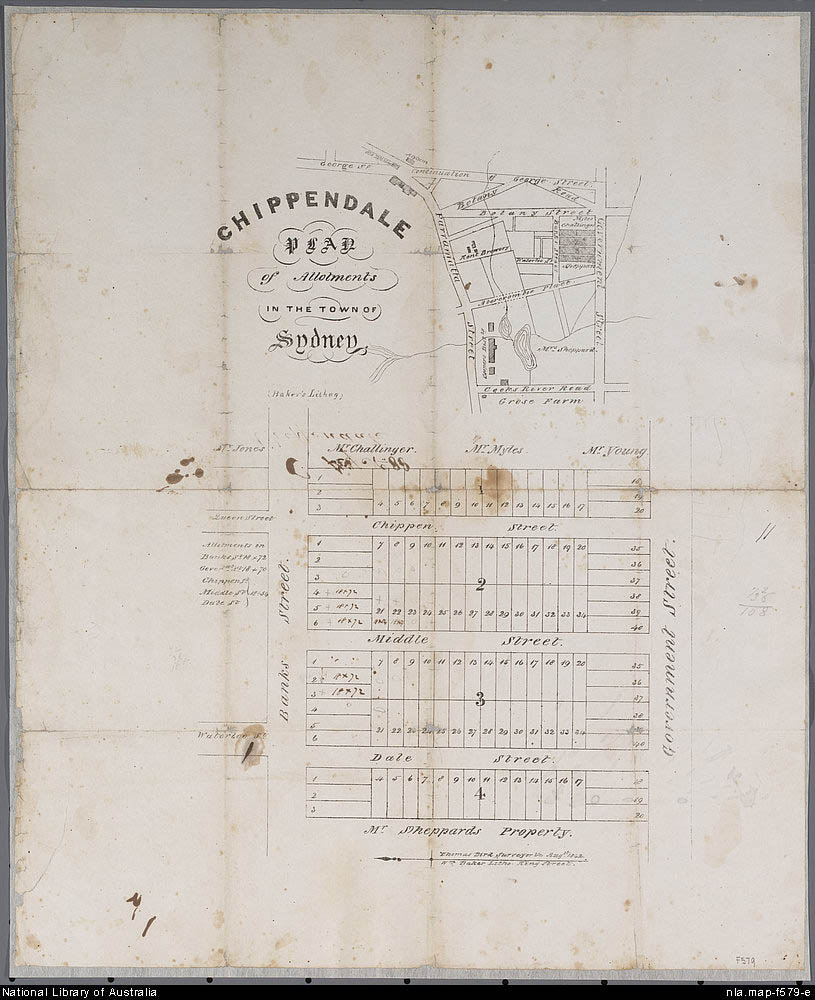 George St.
Continuation of George Street.
Botany Road
Botany Street
CHIPPENDALE
PLAN
of Allotments
IN THE TOWN OF
Sydney
(Baker's Lithog)
Parramatta Street
Kent Brewery
Abercrombie Place
Government Street
Mrs. Sheppard
Cooks River Road
Grose Farm
Mr. Jones
Mr. Challinger.
Mr. Myles.
Mr. Young
1
2
3
4 5 6 7 8 9 10 11 12 13 14 15 16 17
1
18
19
20
Queen Street
Chippen Street.
Allotments on
Banks St. 18 x 72
Chippen St.
Middle St.
Dale St.
1
2
3
4 18x72
5 18x72
6 18x72
7 8 9 10 11 12 13 14 15 16 17 18 19 20
2
21 22 23 24 25 26 27 28 29 30 31 32 33 34
35
36
37
38
39
40
Banks Street.
Government Street.
Middle Street.
1
2 18x72
3 18x72
4
5
6
7 8 9 10 11 12 13 14 15 16 17 18 19 20
3
21 22 23 24 25 26 27 28 29 30 31 32 33 34
35
36
37
38
39
40
Waterloo St
Dale Street.
1
2
3
4 5 6 7 8 9 10 11 12 13 14 15 16 17
4
18
19
20
Mr. Sheppards Property.
Thomas Bird Surveyor
Wm. Baker Litho. King Street.
F579
National Library of Australia
nla.map-f579-e